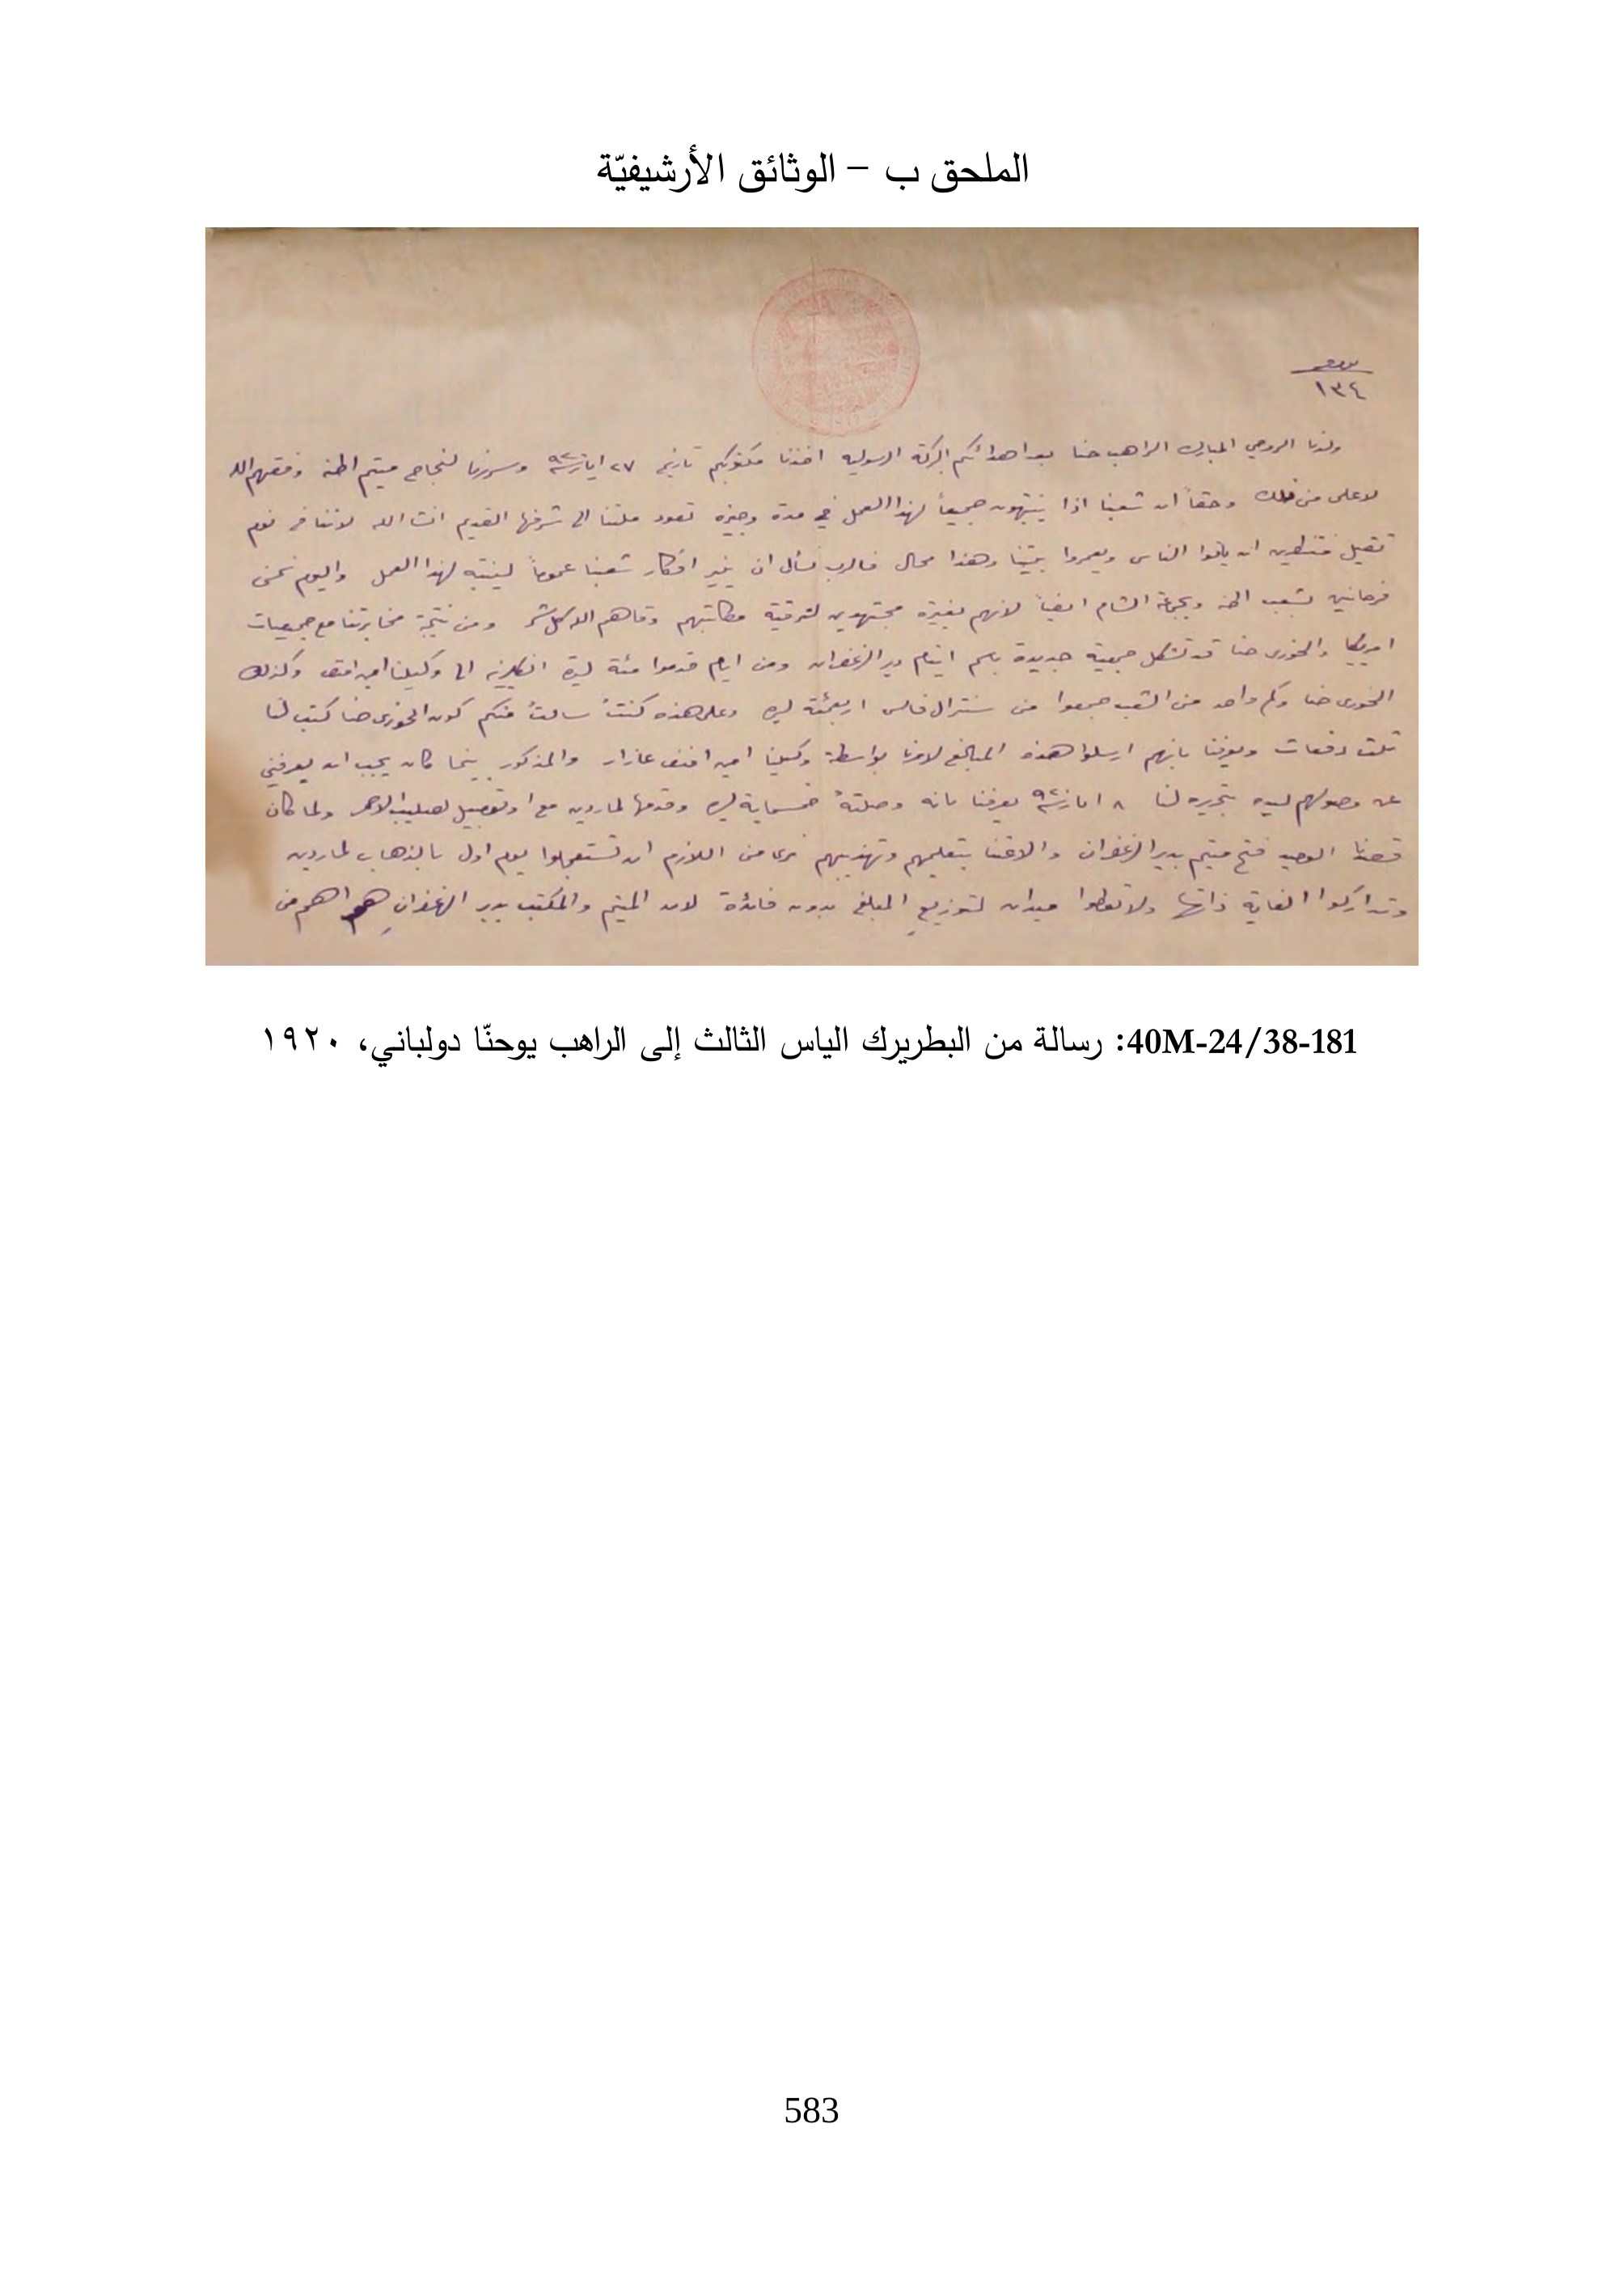 الملحق ب – الوثائق الأرشيفيّة
١٣٤
ولدنا الروحي المبارك الراهب حنا بعد اهدائكم البركة الرسوليه اخذنا مكتوبكم تاريخ ٢٧ ايار وسررنا لنجاح ميتم اطنه وفقهم الله
لاعلى من ذلك وحقاً ان شعبنا اذا ينتبهون جميعاً لهذا العمل في مدة وجيزه تعود ملتنا الى شرفها القديم انشالله لاننا في نوم
ثقيل منتظرين ان ياتوا الناس ويعمروا بيتنا وهذا محال فالرب نسأل ان ينير افكار شعبنا عموماً لينتبه لهذا العمل واليوم نحن
فرحانين بشعب اطنه وبجماعة الشام ايضاً لانهم بغيرة مجتهدين لترقية مكاتبهم وقاهم الله كل شر ومن نتيجة مخابرتنا مع جمعيات
امريكا والخوري حنا قد تشكل جمعية جديدة باسم ايتام دير الزعفران ومن ايام قدموا مئة ليرة انكليزيه الى وكيلنا امين افندي وكذلك
الخوري حنا وكم واحد من الشعب جمعوا من سنترال فالس اربعمئة ليره وعلى هذه كنتُ سالتُ منكم كون الخوري حنا كتب لنا
ثلث دفعات ويعرفنا بانهم ارسلوا هذه المبالغ لامرنا بواسطة وكيلنا امين افندي عازار والمذكور بينما كان يجب ان يعرفني
عن وصولهم ليده بتحريره لنا ٨ ايار يعرفنا بانه وصلتهُ خمسماية ليره وقدمها لماردين مع اوتومبيل لصليب الاحمر ولما كان
قصدنا الوحيد فتح ميتم بدير الزعفران والاعتنا بتعليمهم وتهذيبهم نرى من اللازم ان تستعجلوا يوم اول بالذهاب لماردين
وتداركوا الغاية ذاتها ولا تعطوا ميدان لتوزيع المبلغ بدون فائدة لان الميتم والمكتب بدير الزعفران هم اهم من
40M-24/38-181: رسالة من البطريرك الياس الثالث إلى الراهب يوحنّا دولباني، ١٩٢٠
583